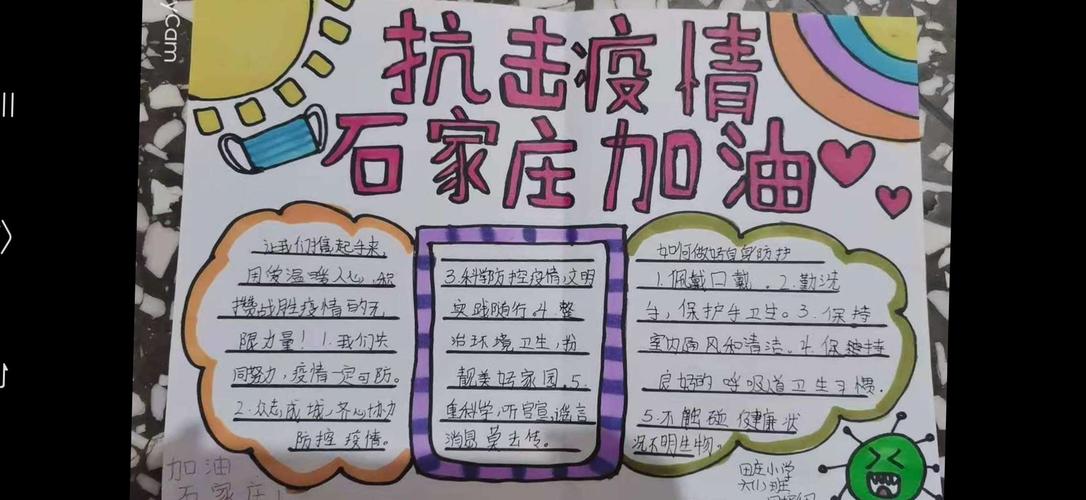 抗击疫情
石家庄加油
让我们携起手来,
用爱温暖人心,积
攒战胜疫情的无
限力量!1.我们共
同努力,疫情一定可防。
2.众志成城,齐心协力
防控疫情。
3.科学防控疫情,文明
实践随行。4.整
治环境卫生,扮
靓美好家园.5.
重科学,听官宣,谣言
消息莫去传。
如何做好自身防护
1.佩戴口戴。2.勤洗
手,保护手卫生。3.保持
室内通风和清洁。4.保持
良好的呼吸道卫生习惯.
5.不触碰健康状
况不明生物。
加油
石家庄!
田庄小学